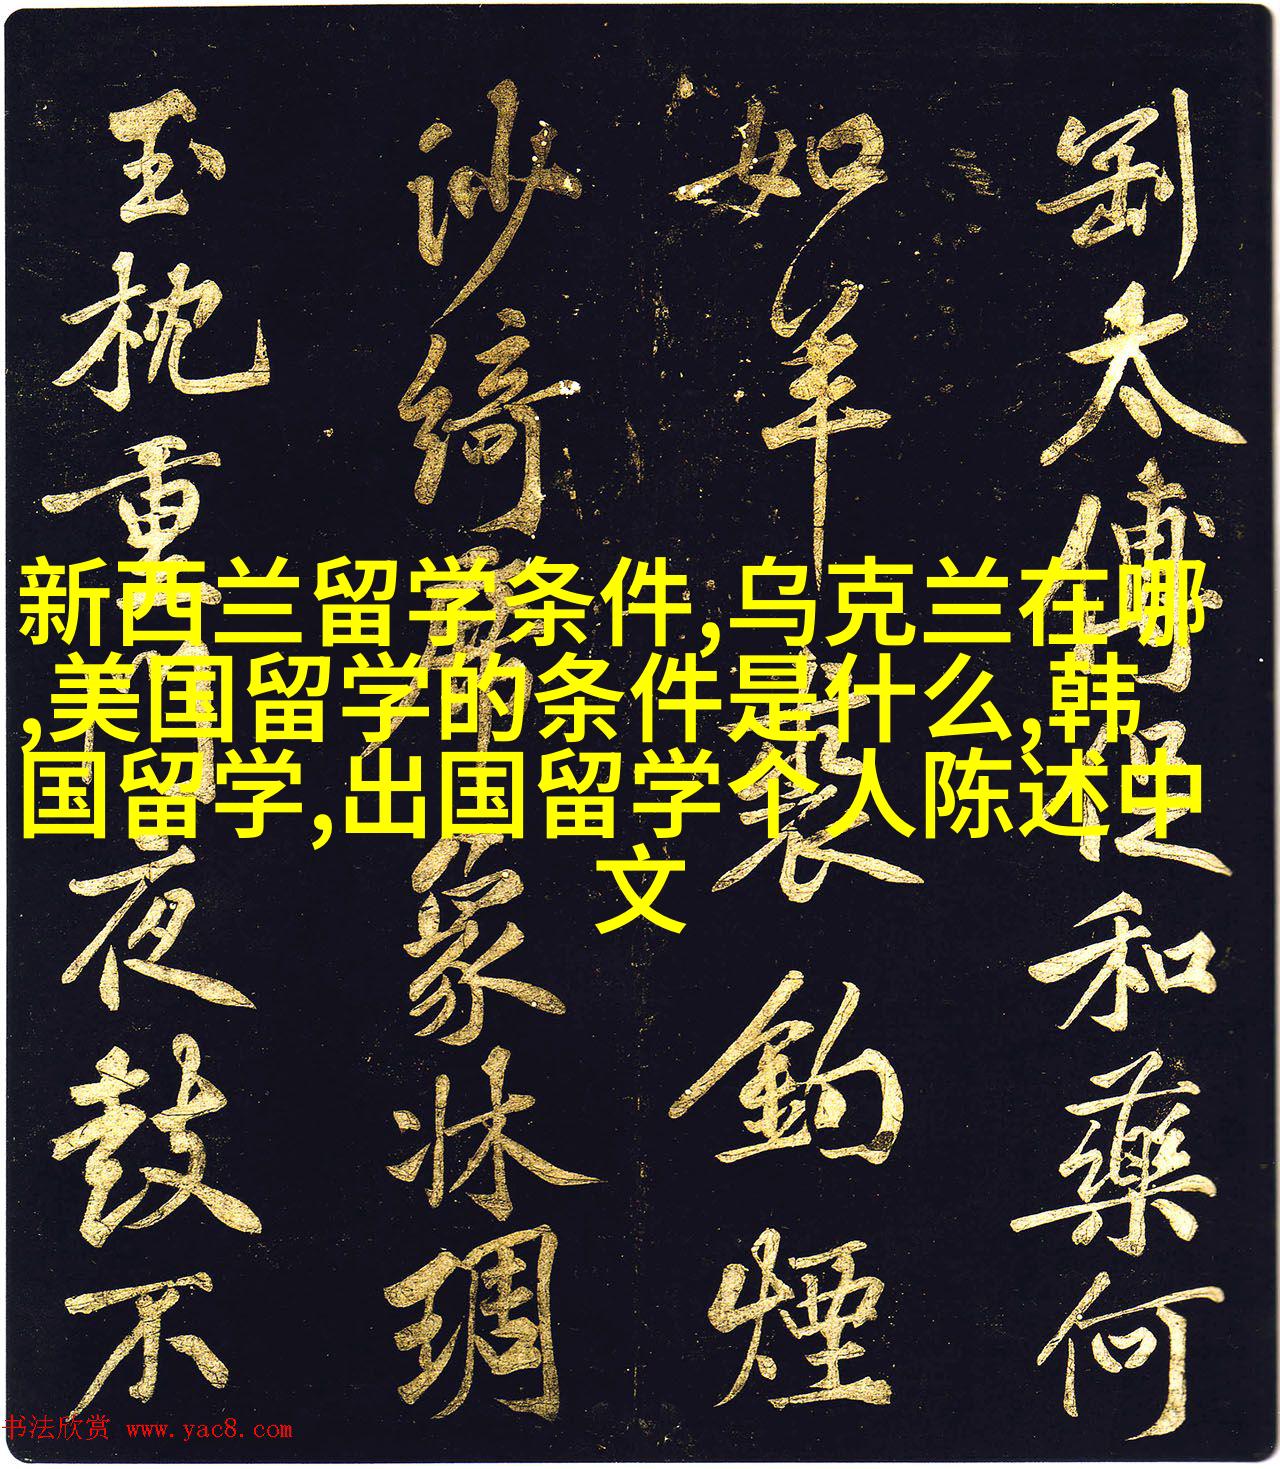 太傅和藥何
如羊鈎煙
沙綺席象牀琱
玉枕重門夜鼓不
新西兰留学条件,乌克兰在哪
,美国留学的条件是什么,韩
国留学,出国留学个人陈述中
文
书法欣赏 www.yac8.com